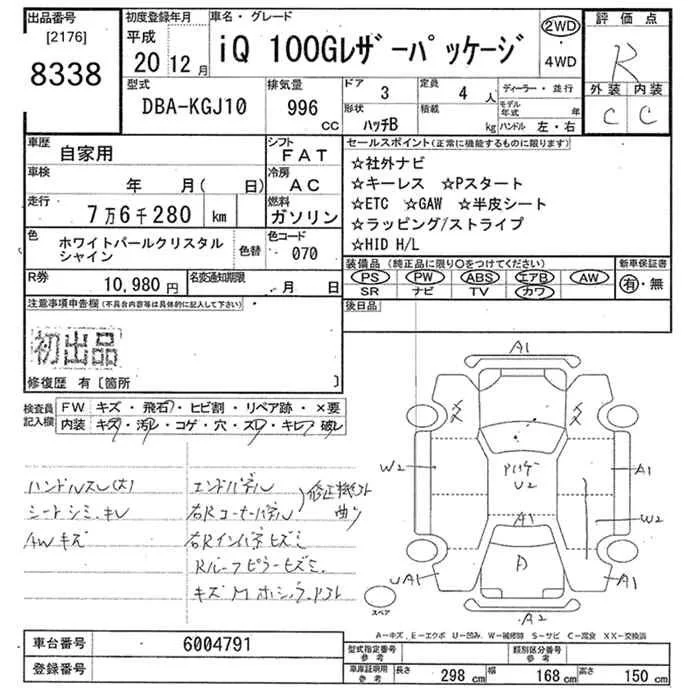 出品番号 初度登録年月 車名・グレード 評価点
[2176] 平成 2WD
8338 20 12 月 iQ 100Gレザーパッケージ ・ R
4WD
型式 排気量 ドア 3 定員 4 人 ディーラー・並行 外装 内装
DBA-KGJ10 996 cc 形状 ハッチB 積載 kg モデル年式 年 C C
ハンドル 左・右
車歴 自家用 シフト FAT セールスポイント(正常に機能するものに限ります)
車検 年 月( 日) 冷房 AC ☆社外ナビ
☆キーレス ☆Pスタート
走行 7万6千280 km 燃料 ガソリン ☆ETC ☆GAW ☆半皮シート
☆ラッピング/ストライプ
色 ホワイトパールクリスタル 色替 色コード 070 ☆HID H/L
シャイン
装備品(純正品に限り○をつけてください) 新車保証書
R券 10,980 円 名変通知期限 月 日 PS PW ABS エアB AW 有・無
SR ナビ TV カワ
注意事項申告欄(不具合内容等は具体的に記入して下さい) 後日品
初出品
修復歴 有〔箇所 〕
検査員 FW キズ・飛石・ヒビ割・リペア跡・×要
記入欄 内装 キズ・汚レ・コゲ・穴・スレ・キレ・破レ
ハンドルスレ(大) エンドパネル
シートシミ、キレ 右Rコーナーパネル
AWキズ 右Rインパネヒズミ
Rルーフピラーヒズミ、
A1
W2 U2 A1
A1 W2
UA1 A A1
スペア A2
A-キズ, E-エクボ U-凹み, W-補修跡 S-サビ C-腐食 XX-交換済
車台番号 6004791 型式指定番号 参考 類別区分番号 参考
登録番号 車庫証明用 参考 長さ 298 cm 幅 168 cm 高さ 150 cm